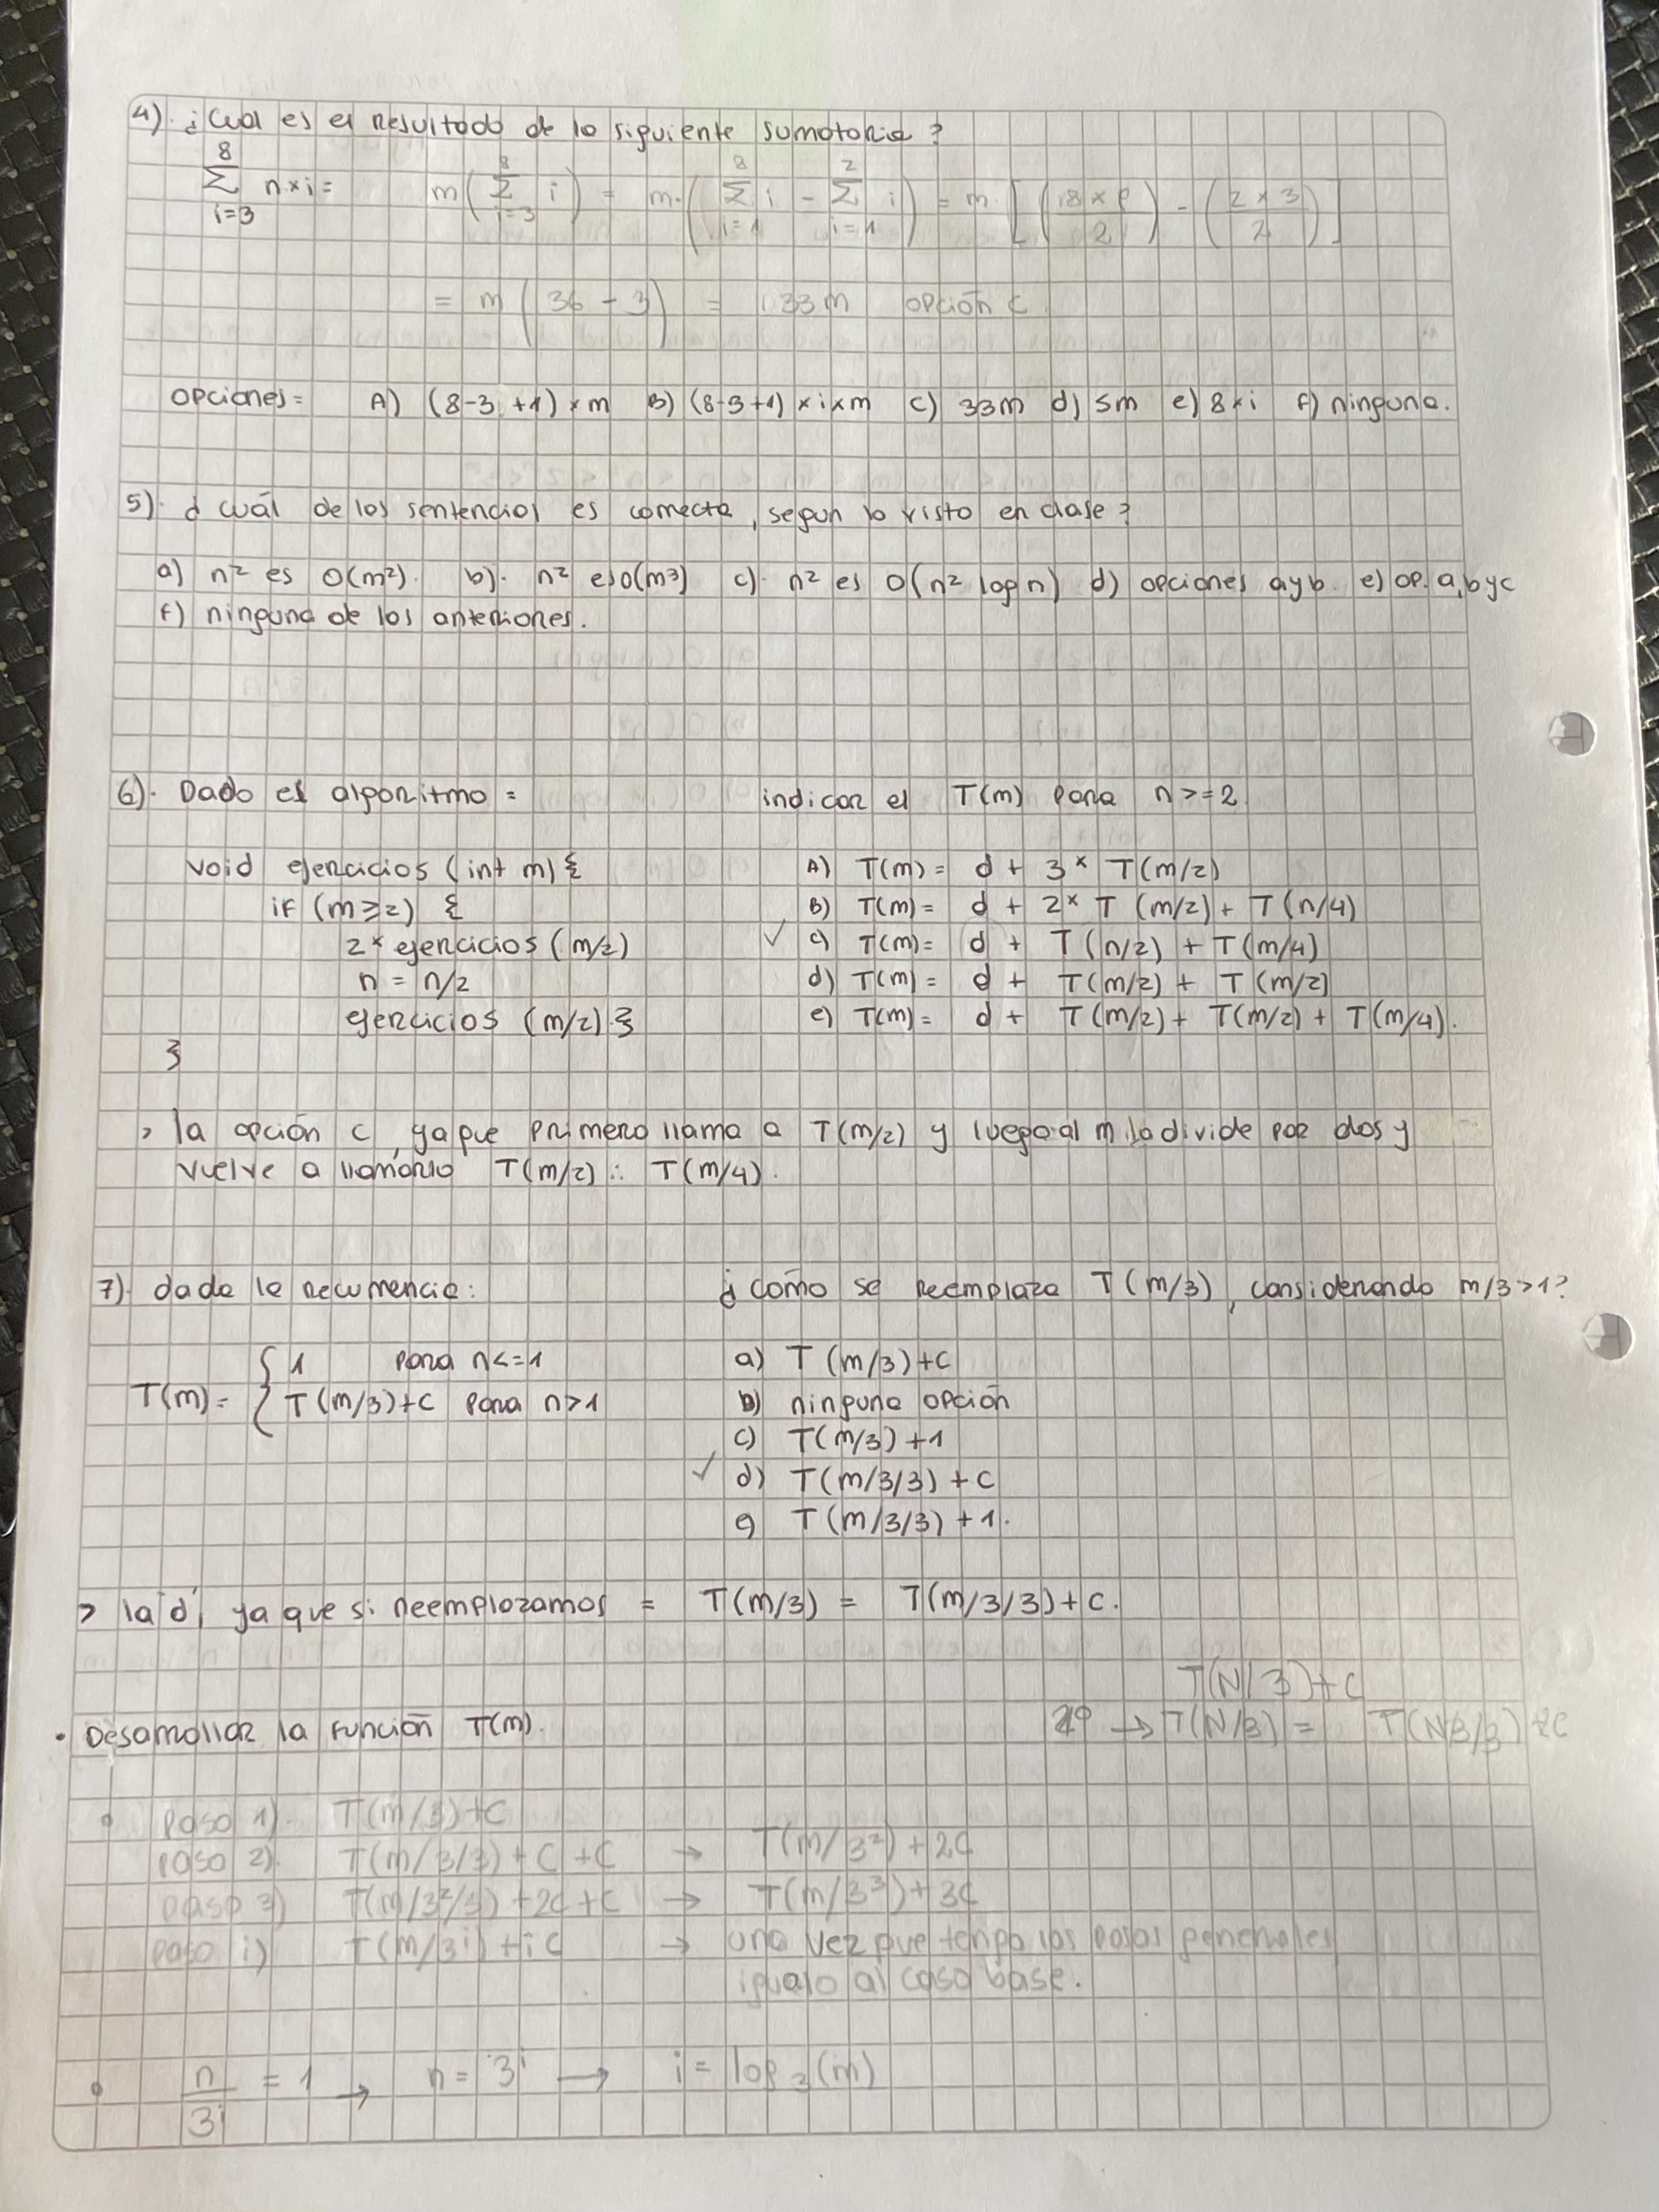 4). ¿Cual es el resultado de la siguiente sumatoria?
8
Σ n×i=
i=3
m( 8 Σ i=3 i ) = m·( 8 Σ i=1 i - 2 Σ i=1 i ) = m [ (8×9/2) - (2×3/2) ]
= m (36 - 3) = 33m opción C
opciones= A) (8-3+1)×m B) (8-3+1)×i×m c) 33m d) 5m e) 8×i f) ninguna.
5). ¿cuál de las sentencias es correcta, segun lo visto en clase?
a) n² es O(m²). b). n² es O(m³) c). n² es O(n² log n) d) opciones a y b. e) op. a, b y c
f) ninguna de las anteriores.
6). Dado el algoritmo =
indicar el T(m) para n>=2
void ejercicios (int m) {
if (m≥2) {
2* ejercicios (m/2)
n = n/2
ejercicios (m/2).}
}
A) T(m) = d + 3* T(m/2)
B) T(m) = d + 2* T (m/2) + T (n/4)
✓ c) T(m) = d + T (n/2) + T(m/4)
d) T(m) = d + T(m/2) + T (m/2)
e) T(m) = d + T(m/2) + T(m/2) + T(m/4).
> la opción c, ya que primero llama a T(m/2) y luego al m lo divide por dos y
vuelve a llamarlo T(m/2) ∴ T(m/4).
7). dada la recurrencia:
¿como se reemplaza T(m/3), considerando m/3>1?
T(m) = { 1 para n<=1
T(m/3)+c para n>1
a) T (m/3)+c
b) ninguna opción
c) T(m/3) +1
✓ d) T(m/3/3) + c
e) T(m/3/3) + 1.
> la d, ya que si reemplazamos = T(m/3) = T(m/3/3)+c.
T(N/3)+c
2º → T(N/3) = T(N/3/3) + 2c
• Desarrollar la función T(m).
• paso 1) T(m/3)+c
paso 2). T(m/3/3) + c + c → T(m/3²) + 2c
paso 3) T(m/3²/3) + 2c + c → T(m/3³) + 3c
paso i) T(m/3i) + i c → una vez que tengo los pasos generales
igualo al caso base.
• n/3i = 1 → n = 3i → i = log3(m)